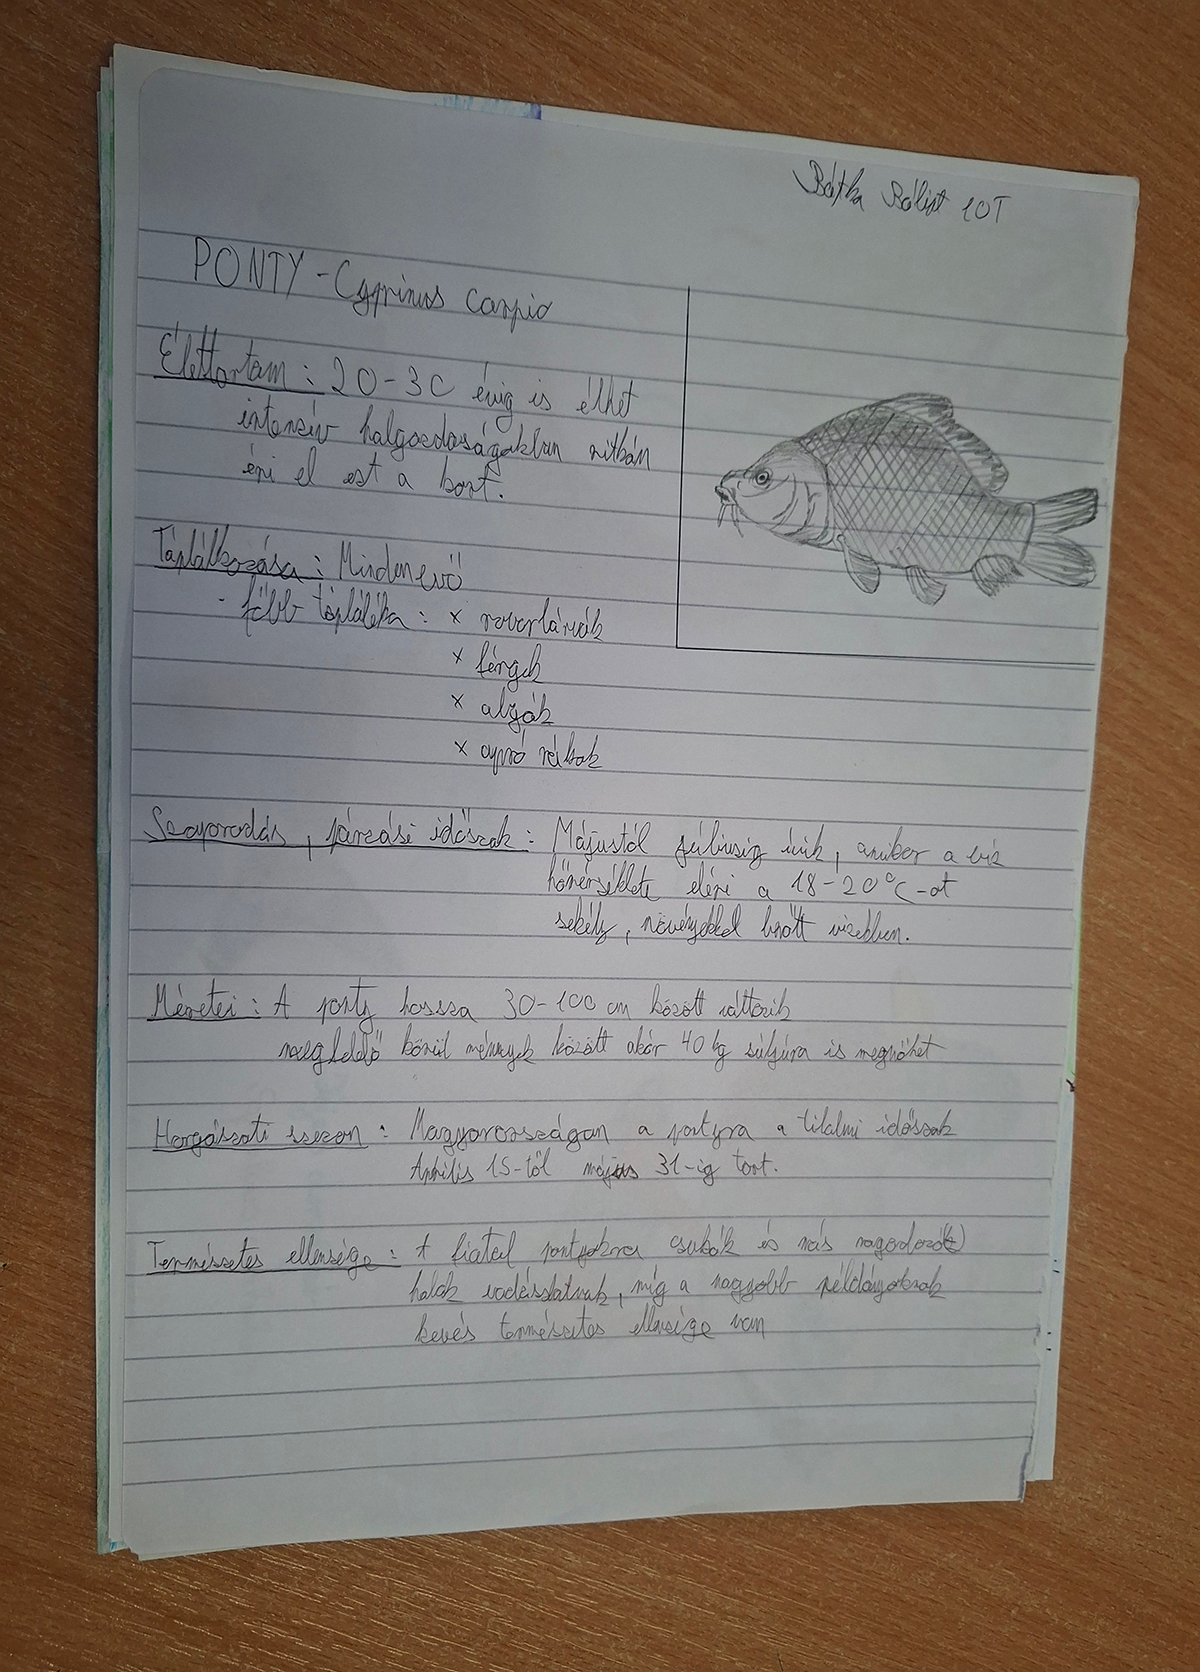 Bátka Bálint 10T
PONTY - Cyprinus carpio
Élettartam: 20-30 évig is élhet
intenzív halgazdaságokban ritkán
éri el ezt a kort.
Táplálkozása: Mindenevő
- főbb tápláléka: x rovarlárvák
x férgek
x algák
x apró rákok
Szaporodás, párzási időszak: Májustól júliusig ívik, amikor a víz
hőmérséklete eléri a 18-20°C-ot
sekély, növényekkel benőtt vizekben.
Méretei: A ponty hossza 30-100 cm között változik
megfelelő körül mények között akár 40 kg súlyúra is megnőhet
Horgászati szezon: Magyarországon a pontyra a tilalmi időszak
Április 15-től május 31-ig tart.
Természetes ellensége: A fiatal pontyokra csukák és más ragadozó
halak vadászhatnak, míg a nagyobb példányoknak
kevés természetes ellensége van